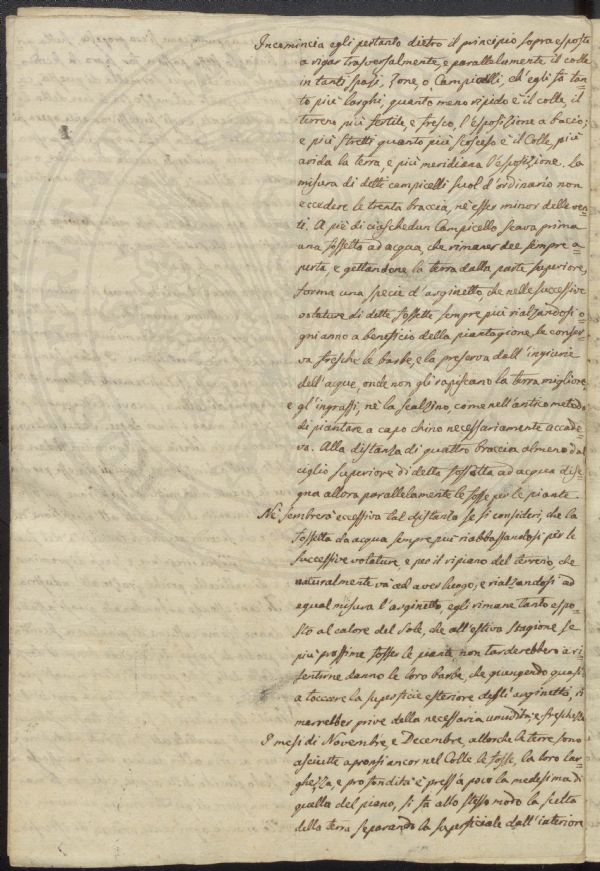 Incomincia egli pertanto dietro il principio sopra esposto
a rigar trasversalmente, e parallelamente il colle
in tanti spazi, Zone, o Campicelli, ch'egli fa tan=
to più larghi, quanto meno ripido è il colle, il
terreno più fertile, e fresco, l'esposizione a bacio;
e più stretti quanto più scosceso è il Colle, più
arida la terra, e più meridiana l'esposizione. La
misura di detti campicelli suol d'ordinario non
eccedere le trenta braccia, nè esser minor delle ven=
ti. A piè di ciaschedun Campicello scava prima
una fossetta ad acqua, che rimaner dee sempre a=
perta, e gettandone la terra dalla parte superiore,
forma una specie d'arginetto, che nelle successive
votature di dette fossette sempre più rialzandosi o=
gni anno a beneficio della piantagione, la conser=
va fresche le barbe, e la preserva dall'ingiurie
dell'acque, onde non gli rapiscano la terra migliore,
e gl'ingrassi, nè la scalzino, come nell'antico metodo
di piantare a capo chino necessariamente accade=
va. Alla distanza di quattro braccia almeno dal
ciglio superiore di detta fossetta ad acqua dise=
gna allora parallelamente le fosse per le piante.
Nè sembrerà eccessiva tal distanza se si consideri, che la
fossetta da acqua sempre più riabbassandosi per le
successive votature, e per il ripiano del terreno, che
naturalmente va ad aver luogo, e rialzandosi ad
egual misura l'arginetto, egli rimane tanto espo=
sto al calore del Sole, che all'estiva stagione se
più prossime fosser le piante non tarderebbero a ri=
sentirne danno le loro barbe, che giungendo quasi
a toccare la superficie esteriore degli arginetti, ri
marrebber prive della necessaria umidità, e freschezza
I mesi di Novembre, e Decembre, allorchè le terre sono
asciutte apronsi ancor nel Colle le fosse, la loro lar=
ghezza, e profondità è press'a poco la medesima di
quella del piano, si fa allo stesso modo la scelta
della terra separando la superficiale dall'interiore